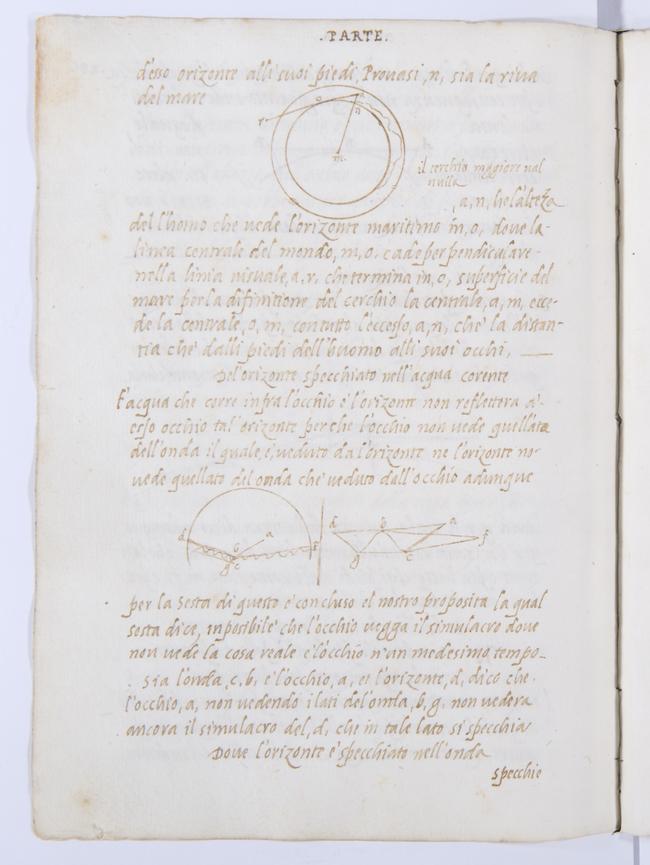 .PARTE.
d'esso orizonte alli suoi piedi, Prouasi, n, sia la riua
del mare
r o a n m
il cerchio magiore nal
nulla
a, n, he l'alteza
del l'homo che uede l'orizonte maritimo m, o, doue la-
linea centrale del mondo, m, o. cade perpendiculare
nella linia uisuale, a. r. che termina in, o, superficie del
mare per la difinitione del cerchio la centrale, a, m, ecce-
de la centrale, o, m, con tutto l'eccesso, a, n, che la distan-
tia che dalli piedi dell'huomo alli suoi occhi,
Del'orizonte specchiato nell'acqua corente
L'acqua che corre infra l'occhio e l'orizonte non reflettera a'
esso occhio tal orizonte perche l'occhio non uede quellato
dell'onda il quale, e, ueduto da l'orizonte ne l'orizonte no
uede quellato del onda che ueduto dall'occhio adunque
d b a f g c
d b a f g c
per la Sesta di questo e concluso el nostro proposita la qual
sesta dice, inposibile che l'occhio uegga il simulacro doue
non uede la cosa reale e l'occhio n'un medesimo tempo
. Sia l'onda, c, b, e l'occhio, a, et l'orizonte, d, dico che.
l'occhio, a, non uedendo i lati del'onda, b, g, non uedera
ancora il simulacro del, d, che in tale lato si specchia
Doue l'orizonte e specchiato nell'onda
specchie